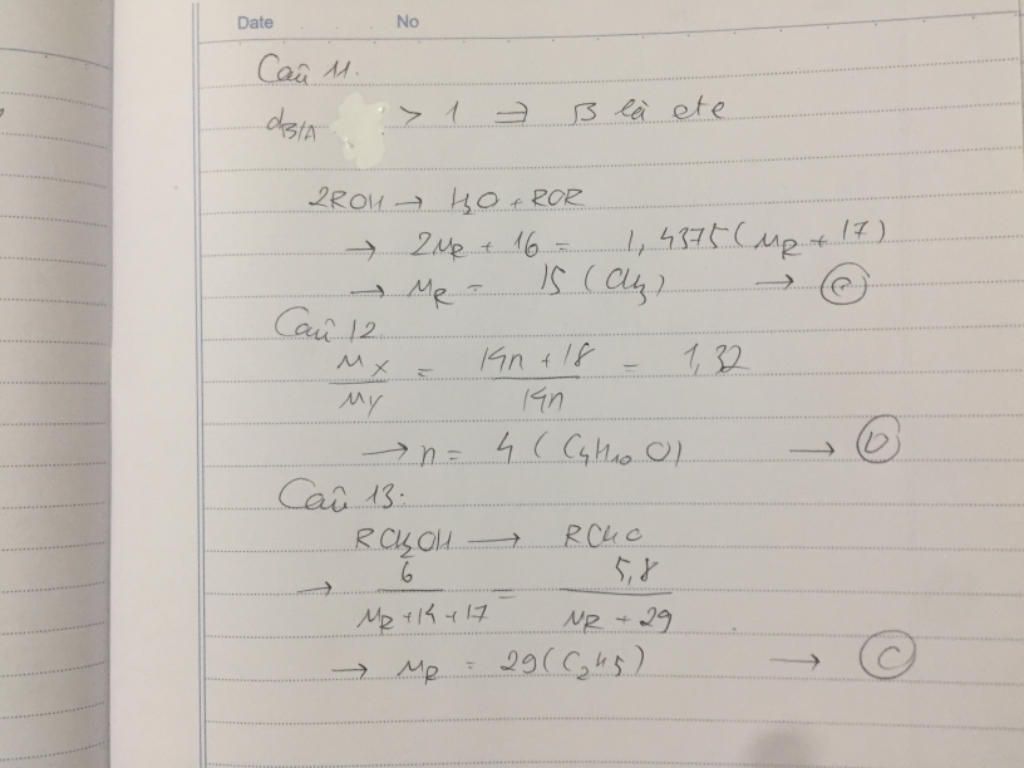 Date No
Câu 11.
dB/A > 1 ⇒ B là ete
2ROH → H2O + ROR
→ 2MR + 16 = 1,4375(MR + 17)
→ MR = 15 (CH3) →
Câu 12.
MX/MY = (14n + 18)/14n = 1,32
→ n = 4 (C4H10O) → D
Câu 13:
RCH2OH → RCHO
→ 6/(MR + 14 + 17) = 5,8/(MR + 29)
→ MR = 29 (C2H5) → C